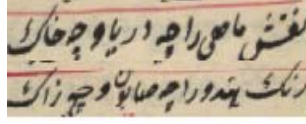 نقش ماهی را چه دریا و چه خاک
رنگ هندو را چه صابون و چه زاک